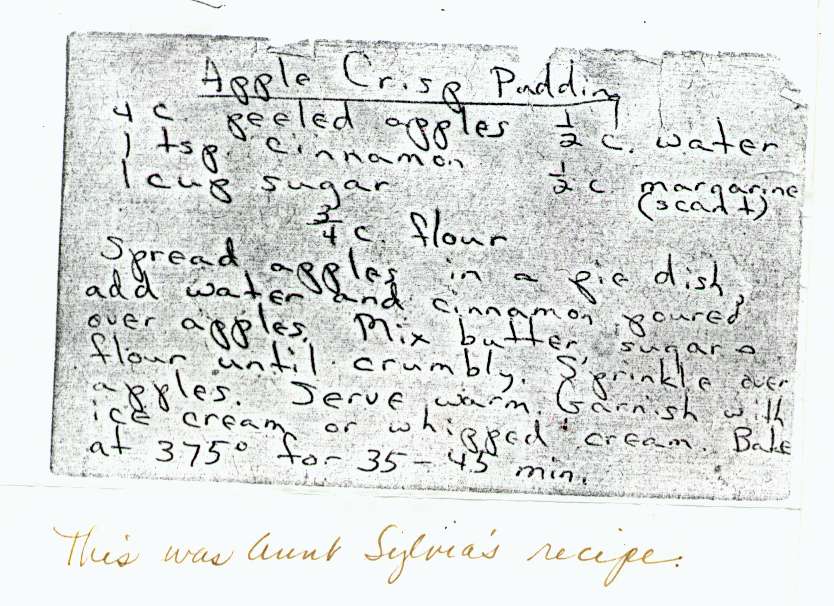 Apple Crisp Pudding
4 c. peeled apples ½ c. water
1 tsp. cinnamon
1 cup sugar ½ c. margarine
(scant)
¾ c. flour
Spread apples in a pie dish,
add water and cinnamon poured
over apples. Mix butter, sugar &
flour until crumbly. Sprinkle over
apples. Serve warm. Garnish with
ice cream or whipped cream. Bake
at 375° for 35-45 min.
This was Aunt Sylvia's recipe.